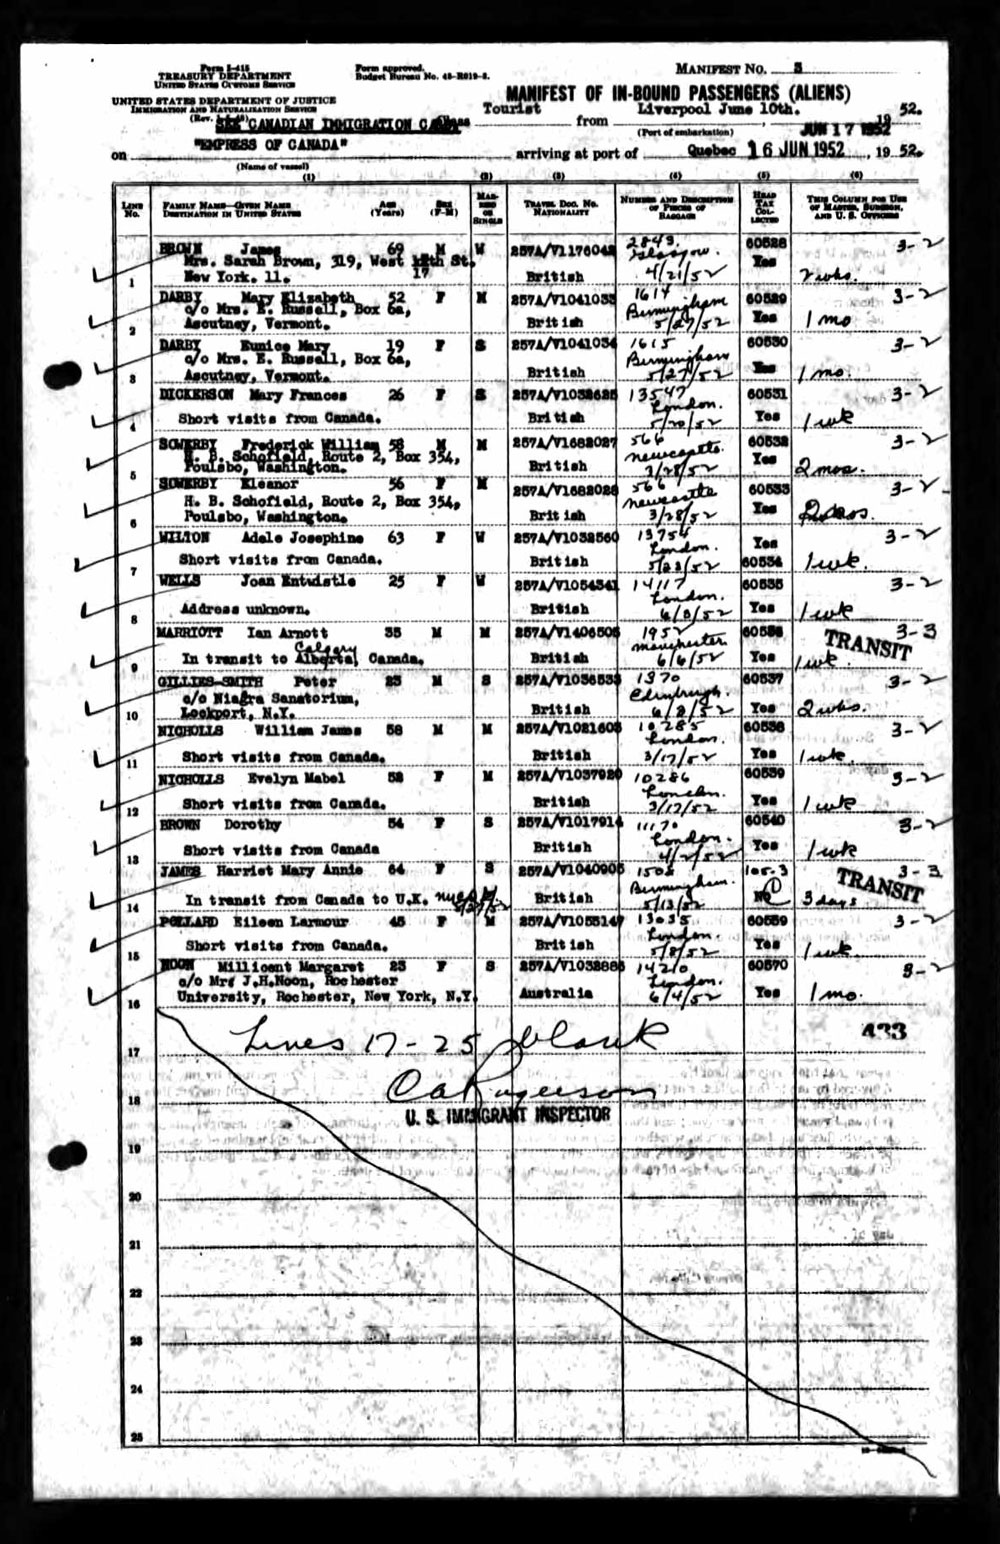 Form I-415
TREASURY DEPARTMENT
UNITED STATES CUSTOMS SERVICE
Form approved.
Budget Bureau No. 43-R019-2.
MANIFEST NO. 3
UNITED STATES DEPARTMENT OF JUSTICE
IMMIGRATION AND NATURALIZATION SERVICE
MANIFEST OF IN-BOUND PASSENGERS (ALIENS)
SEE CANADIAN IMMIGRATION Class Tourist from Liverpool June 10th. , 19 52.
(Port of embarkation) JUN 17 1952
on "EMPRESS OF CANADA" arriving at port of Quebec 16 JUN 1952, 19 52.
(Name of vessel)
(1) (2) (3) (4) (5) (6)
LINE No. FAMILY NAME—GIVEN NAME DESTINATION IN UNITED STATES AGE (Years) SEX (F-M) MARRIED OR SINGLE TRAVEL DOC. NO. NATIONALITY NUMBER AND DESCRIPTION OF PIECES OF BAGGAGE HEAD TAX COLLECTED THIS COLUMN FOR USE OF MASTER, SURGEON, AND U. S. OFFICERS
BROWN James 69 M W 257A/V1176042 2843. 60528 3-2
Mrs. Sarah Brown, 319, West St. Glasgow. Yes
1 New York. 11. 17 British 4/21/52 2 wks.
DARBY Mary Elizabeth 52 F M 257A/V1041033 1614 60529 3-2
c/o Mrs. E. Russell, Box 6a, Birmingham
2 Ascutney, Vermont. British 5/27/52 Yes 1 mo
DARBY Eunice Mary 19 F S 257A/V1041034 1615 60530 3-2
c/o Mrs. E. Russell, Box 6a, Birmingham
3 Ascutney, Vermont. British 5/27/52 Yes 1 mo.
DICKERSON Mary Frances 26 F S 257A/V1032625 13547 60531 3-2
London.
4 Short visits from Canada. British 5/20/52 Yes 1 wk
SOWERBY Frederick William 58 M M 257A/V1682027 566 60532 3-2
H. B. Schofield, Route 2, Box 354, Newcastle.
5 Poulsbo, Washington. British 3/28/52 Yes 2 mos.
SOWERBY Eleanor 56 F M 257A/V1682028 566 60533 3-2
H. B. Schofield, Route 2, Box 354, Newcastle
6 Poulsbo, Washington. British 3/28/52 Yes
WILTON Adele Josephine 63 F W 257A/V1032560 13754 Yes 3-2
London.
7 Short visits from Canada. British 5/23/52 60534 1 wk.
WELLS Joan Entwistle 25 F W 257A/V1054341 14117 60535 3-2
London.
8 Address unknown. British 6/3/52 Yes 1 wk
MARRIOTT Ian Arnott 35 M M 257A/V1406506 1952 60536 3-3
Calgary Manchester TRANSIT
9 In transit to Alberta, Canada. British 6/6/52 Yes 1 wk.
GILLIES-SMITH Peter 23 M S 257A/V1036533 1370 60537 3-2
c/o Niagra Sanatorium, Edinburgh.
10 Lockport, N.Y. British 6/2/52 Yes 2 wks.
NICHOLLS William James 58 M M 257A/V1021603 10285 60538 3-2
London.
11 Short visits from Canada. British 3/17/52 Yes 1 wk.
NICHOLLS Evelyn Mabel 52 F M 257A/V1037920 10286 60539 3-2
London.
12 Short visits from Canada. British 3/17/52 Yes 1 wk
BROWN Dorothy 54 F S 257A/V1017914 11170 60540 3-2
London.
13 Short visits from Canada British 4/2/52 Yes 1 wk
JAMES Harriet Mary Annie 64 F S 257A/V1040905 1508 105-3 3-3
Birmingham. TRANSIT
14 In transit from Canada to U.K. British 5/13/52 No 3 days
POLLARD Eileen Larmour 45 F M 257A/V1055147 13035 60569 3-2
London.
15 Short visits from Canada. British 5/8/52 Yes 1 wk.
NOON Millicent Margaret 23 F S 257A/V1032886 14210 60570 3-2
c/o Mr J.H.Noon, Rochester London.
16 University, Rochester, New York, N.Y. Australia 6/4/52 Yes 1 mo.
Lines 17-25 blank 433
17
18
U. S. IMMIGRANT INSPECTOR
19
20
21
22
23
24
25